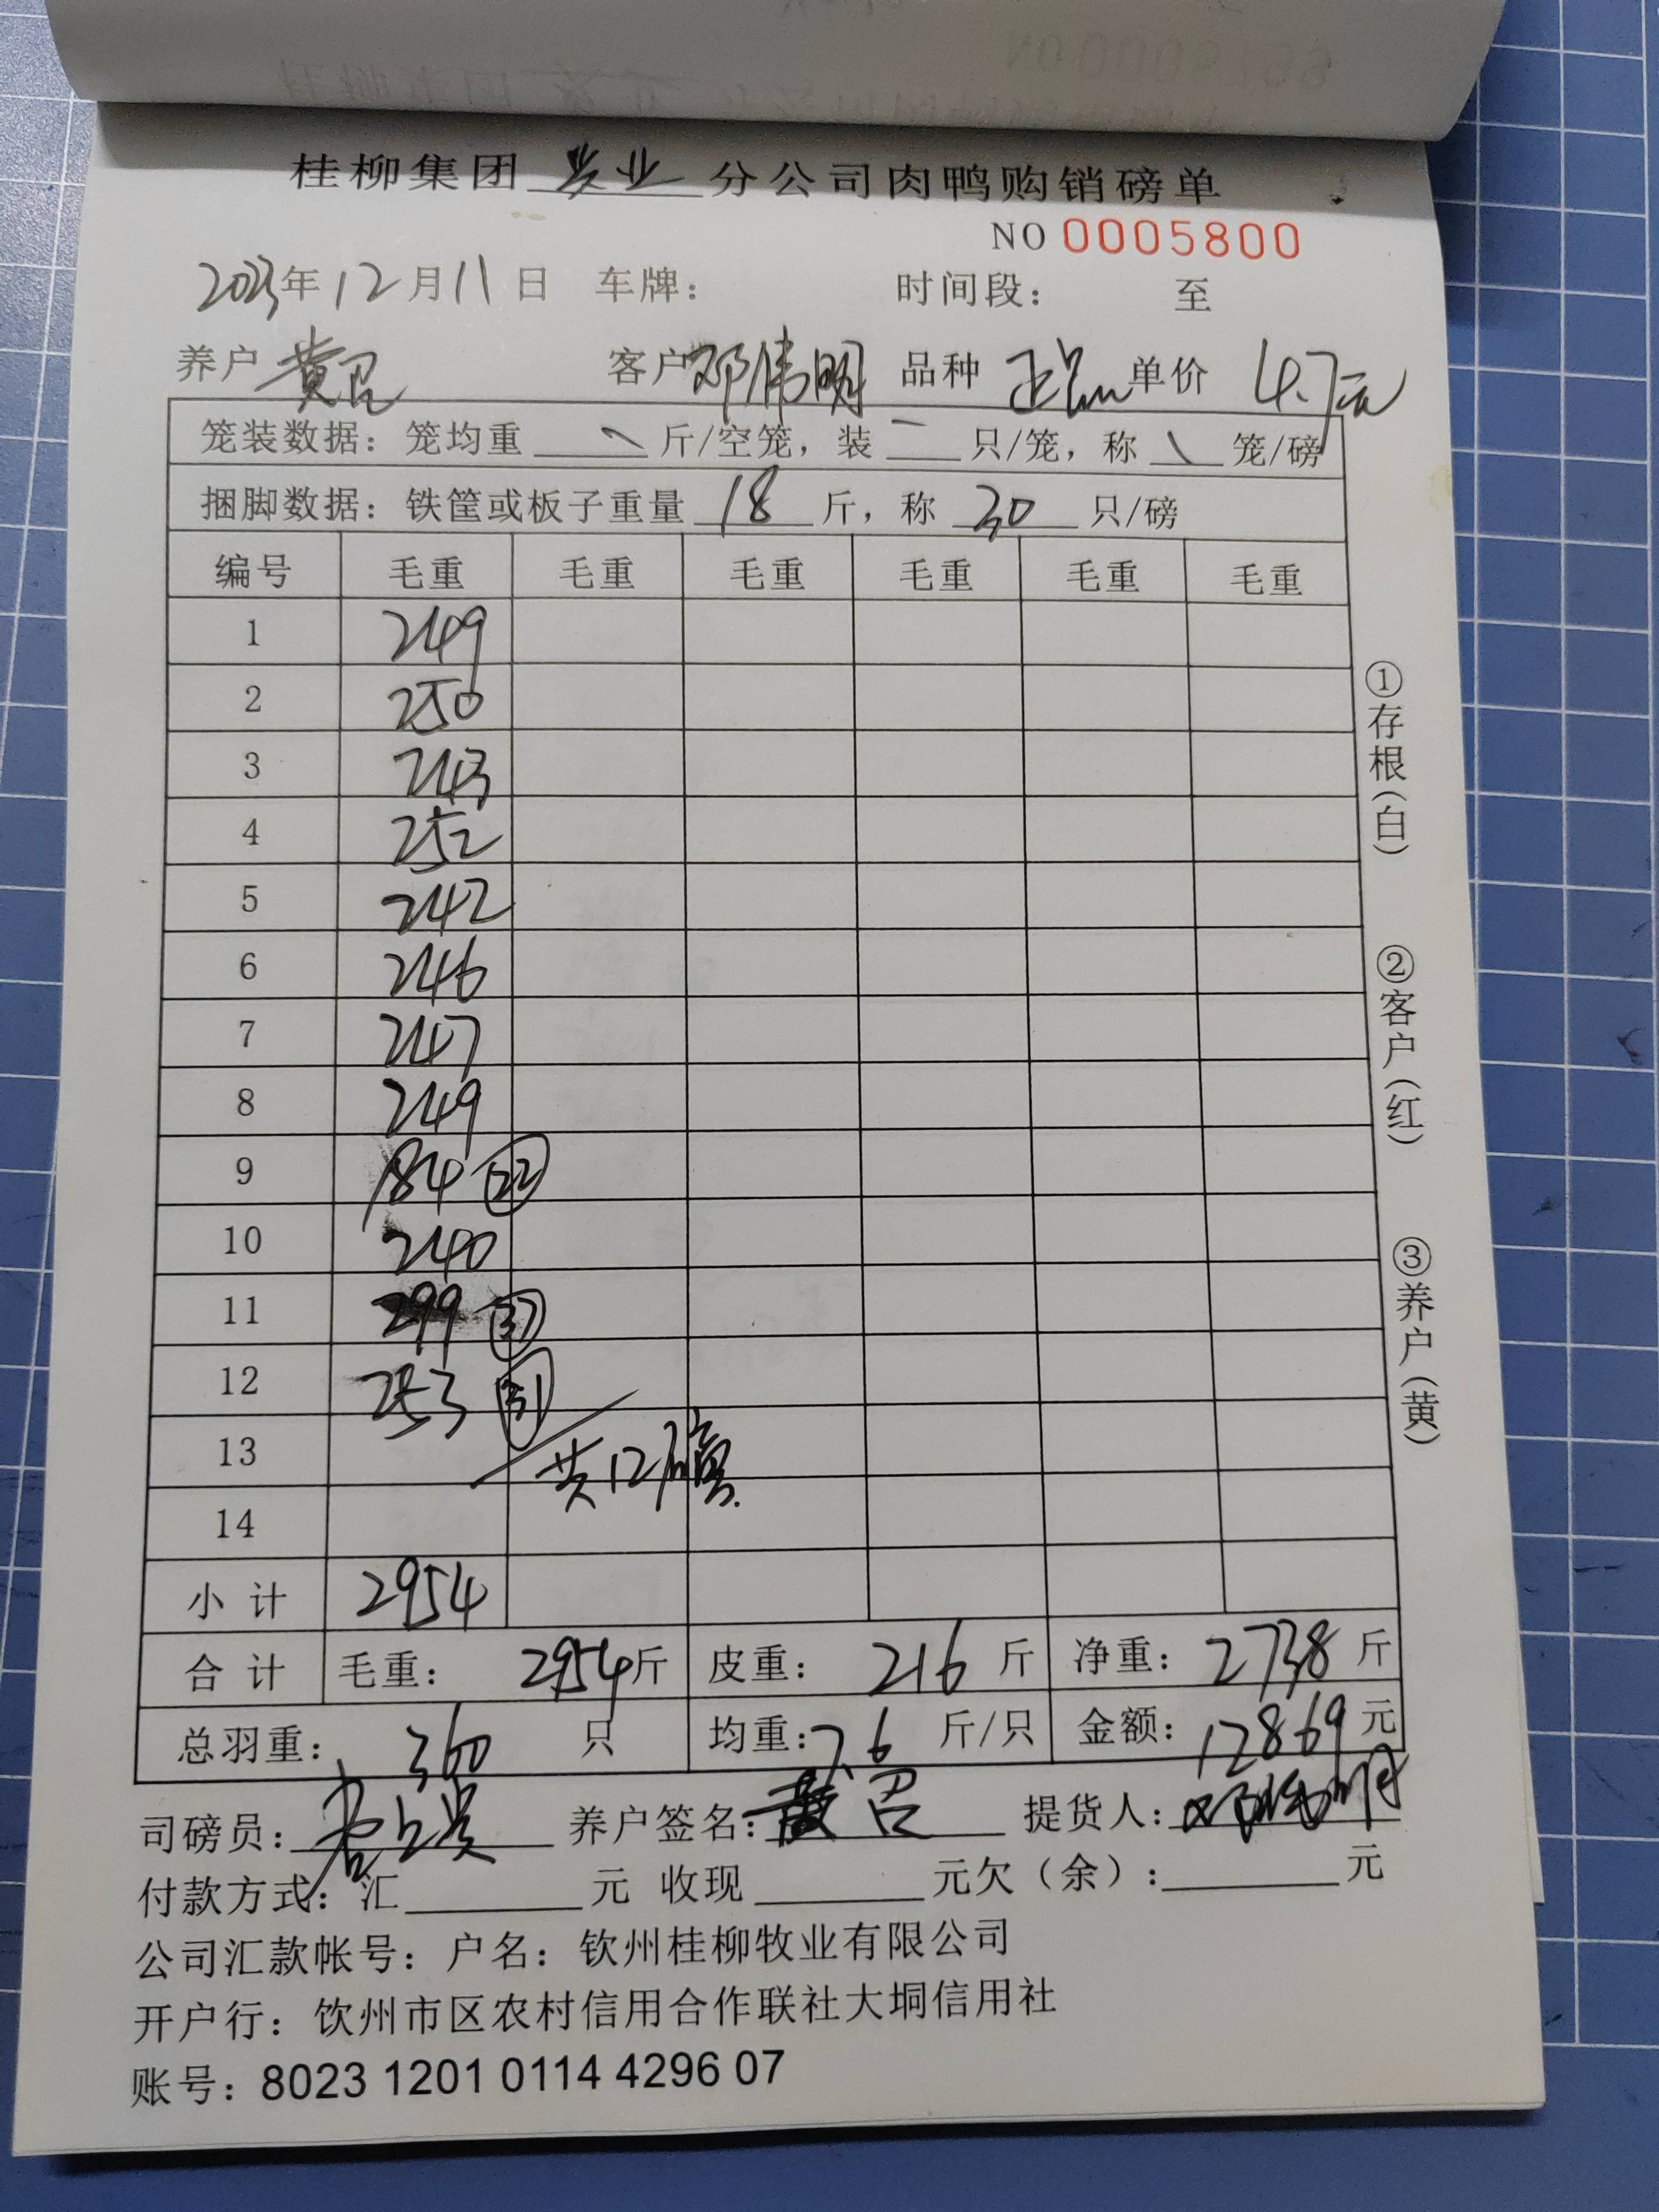 桂柳集团 兴业 分公司肉鸭购销磅单
NO 0005800
2023年12月11日 车牌： 时间段： 至
养户 黄召 客户 邓伟明 品种 正品 单价 4.7元
笼装数据：笼均重 斤/空笼，装 只/笼，称 笼/磅
捆脚数据：铁筐或板子重量 18 斤，称 30 只/磅
编号 毛重 毛重 毛重 毛重 毛重 毛重
1 249
2 250
3 243
4 252
5 242
6 246
7 247
8 249
9 184 22
10 240
11 299 37
12 253 31
13 共12磅
14
小计 2954
合计 毛重： 2954斤 皮重： 216 斤 净重： 2738 斤
总羽重： 360 只 均重：7.6 斤/只 金额： 12869 元
司磅员： 养户签名：黄召 提货人：邓伟明
付款方式：汇 元 收现 元欠（余）： 元
公司汇款帐号：户名：钦州桂柳牧业有限公司
开户行：饮州市区农村信用合作联社大垌信用社
账号：8023 1201 0114 4296 07
①存根（白）
②客户（红）
③养户（黄）